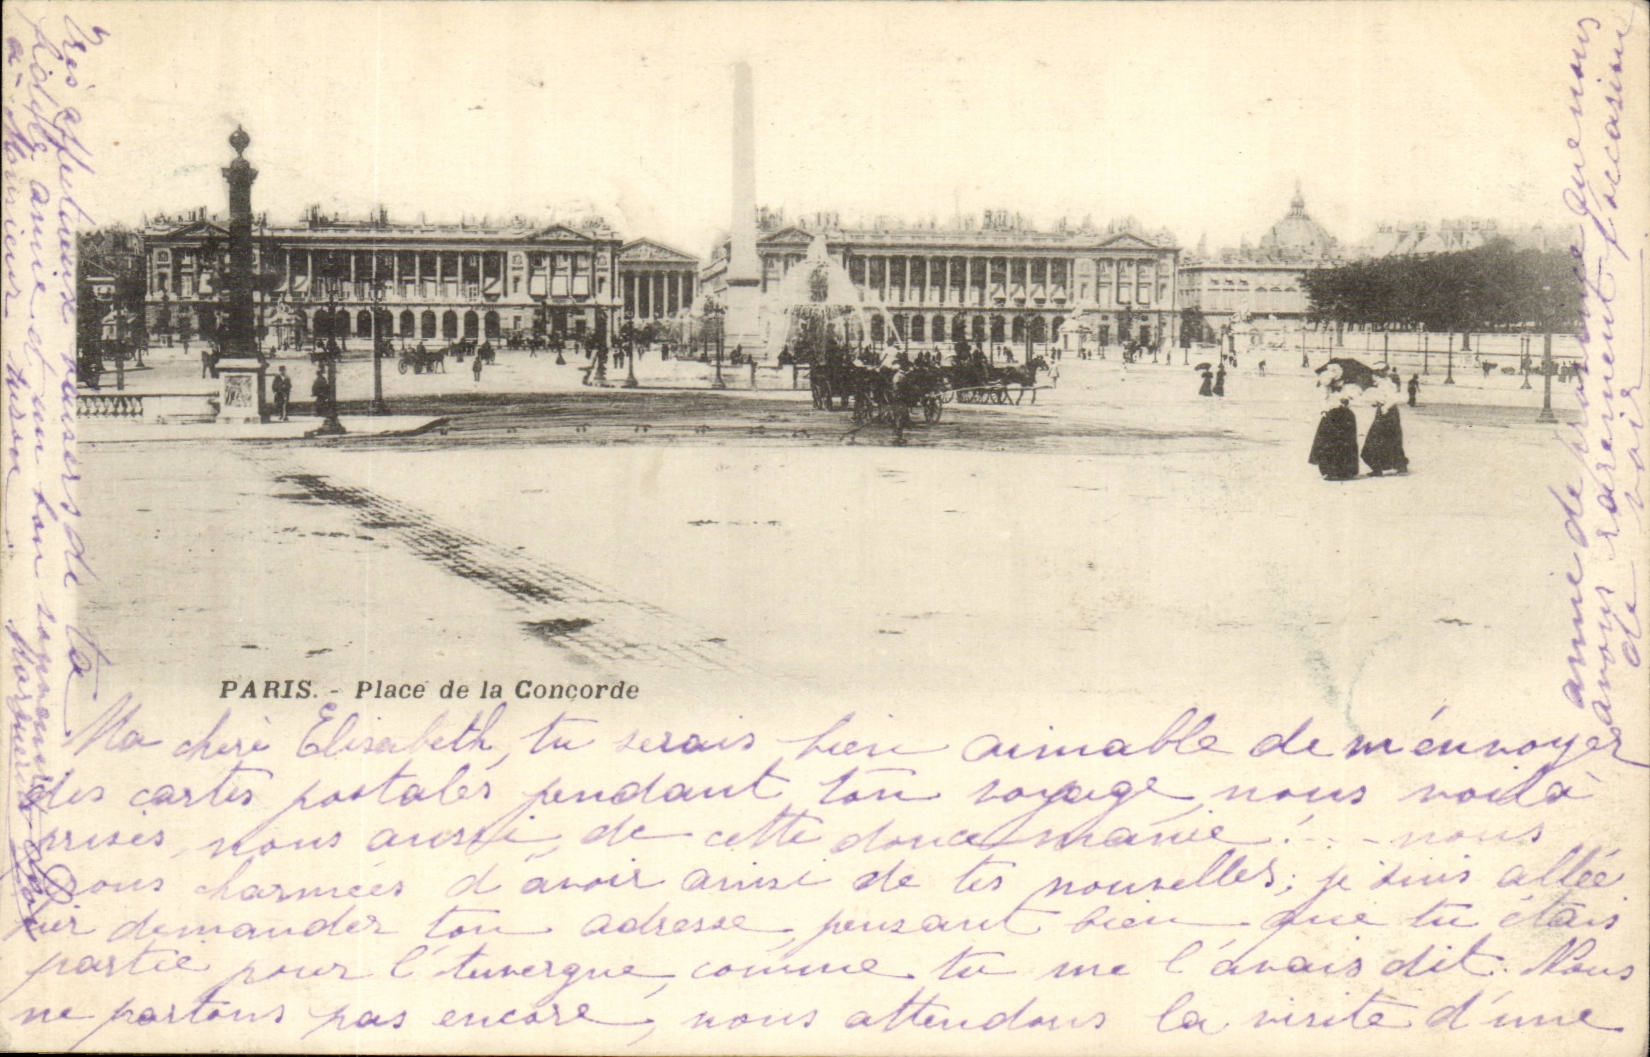 PARIS. - Place de la Concorde
Ma chère Elisabeth, tu serais bien aimable de m'envoyer
des cartes postales pendant ton voyage, nous voilà
prises, nous aussi, de cette douce manie! . . - nous
serons charmées d'avoir ainsi de tes nouvelles; je suis allée
hier demander ton adresse, pensant bien que tu étais
partie pour l'Auvergne, comme tu me l'avais dit. Nous
ne partons pas encore, nous attendons la visite d'une
amie de province que nous
avons rarement l'occasion
de voir
Très affectueux baisers de ta
fidèle amie et un bon souvenir
à Monsieur
Marguerite